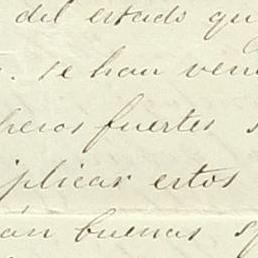 del estado qu
. se han ven
heros fuertes s
plicar estos
an buenas s